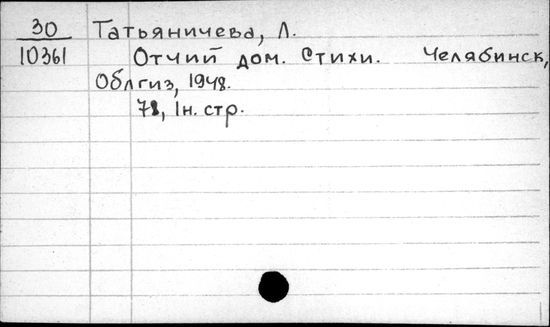 30 Татьяничева, Л.
10361 Отчий дом. Стихи. Челябинск,
Облгиз, 1948.
78, 1н. стр.